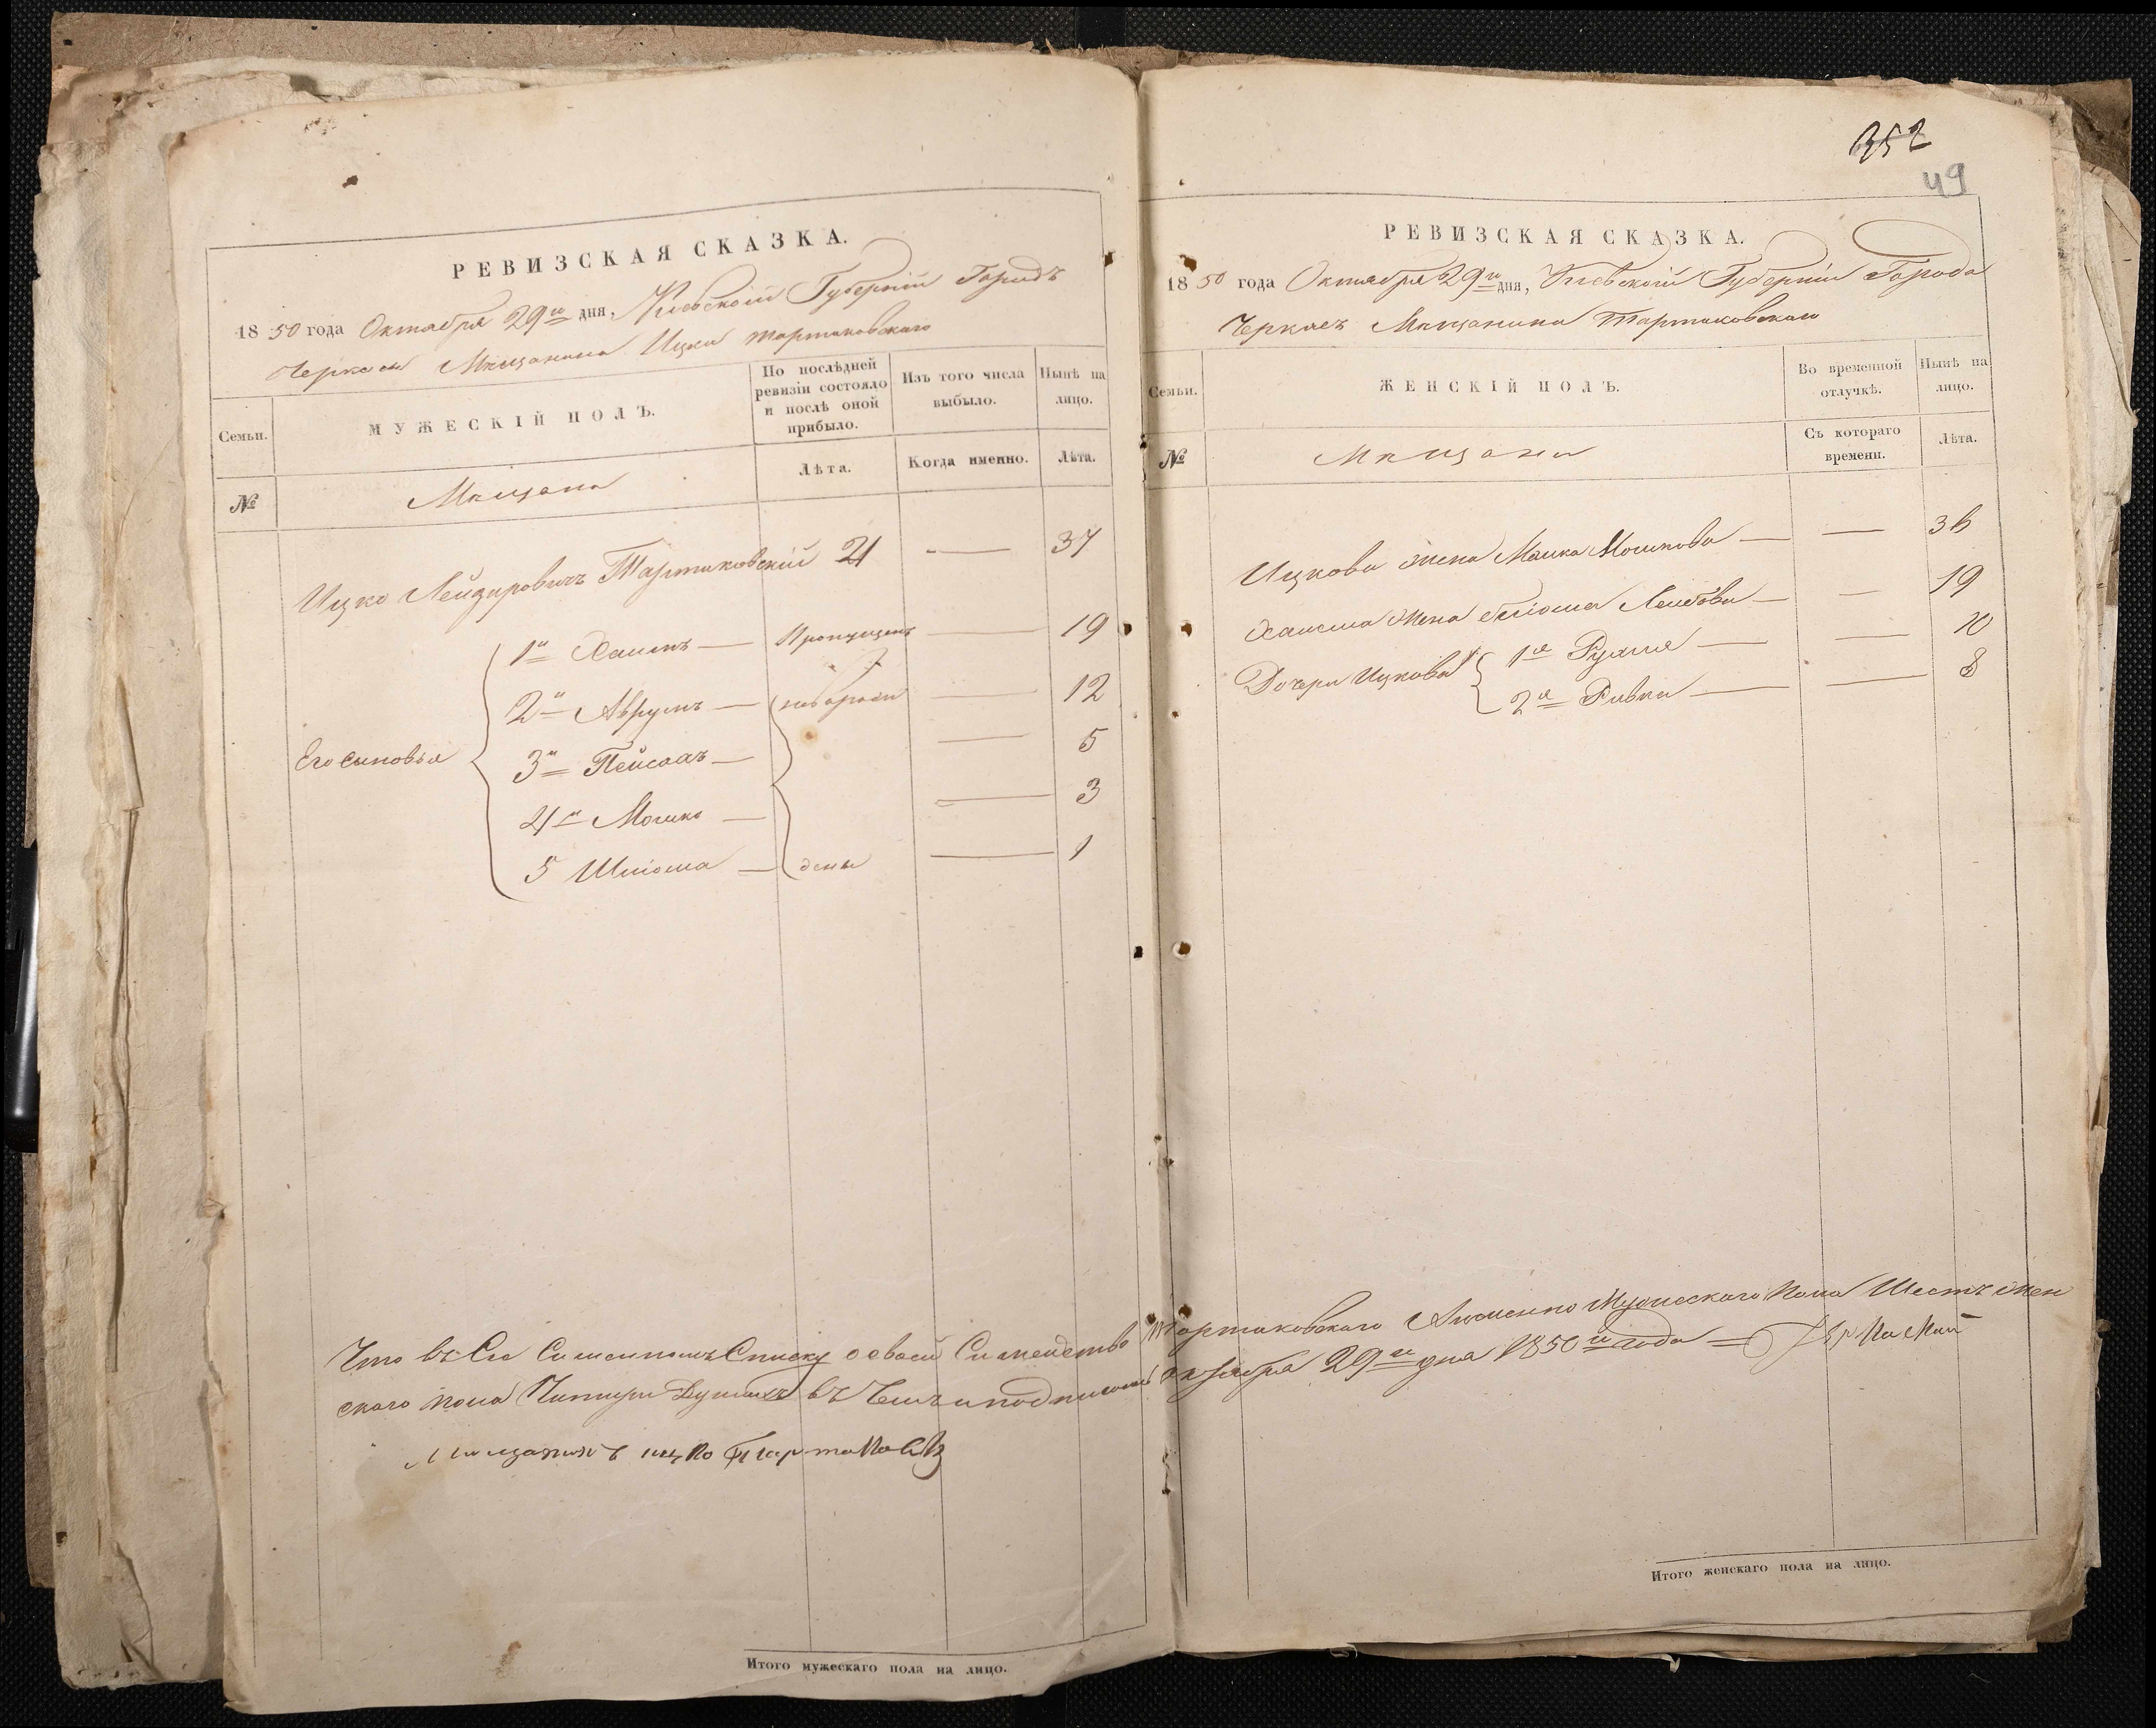 РЕВИЗСКАЯ СКАЗКА.
1850 года Октября 29го дня, Кіевской Губерніи Городъ
Черкасы Мещанина Ицки Тартаковскаго
Семьи.
МУЖЕСКІЙ ПОЛЪ.
По послѣдней ревизіи состояло и послѣ оной прибыло.
Изъ того числа выбыло.
Нынѣ на лицо.
№
Мещане
Лѣта.
Когда именно.
Лѣта.
Ицко Лейзеровичъ Тартаковскій 21 — 37
Его сыновья
1й Хаимъ — Пропущенъ — 19
2й Аврумъ — новорож — 12
3й Пейсахъ — — 5
4й Мошко — — 3
5 Шлиома — дены — 1
Что въ Сем Списку о своей Семействе Тартаковскаго Аименно Мужескаго Пола Шесть Жен
скаго пола Читыри Душ въ Чемъ и подписались октября 29го дня 1850го года
Мещанинъ ицко Тартаков
Итого мужескаго пола на лицо.
352
49
РЕВИЗСКАЯ СКАЗКА.
1850 года Октября 29го дня, Кіевской Губерніи Города
Черкасъ Мещанина Тартаковскаго
Семьи.
ЖЕНСКІЙ ПОЛЪ.
Во временной отлучкѣ.
Нынѣ на лицо.
№
Мещане
Съ котораго времени.
Лѣта.
Ицкова жена Малка Мошкова — — 36
Хаимма Жена Лейбова — — 19
Дочери Ицкова
1я Рухля — — 10
2я Ривка — — 8
Итого женскаго пола на лицо.